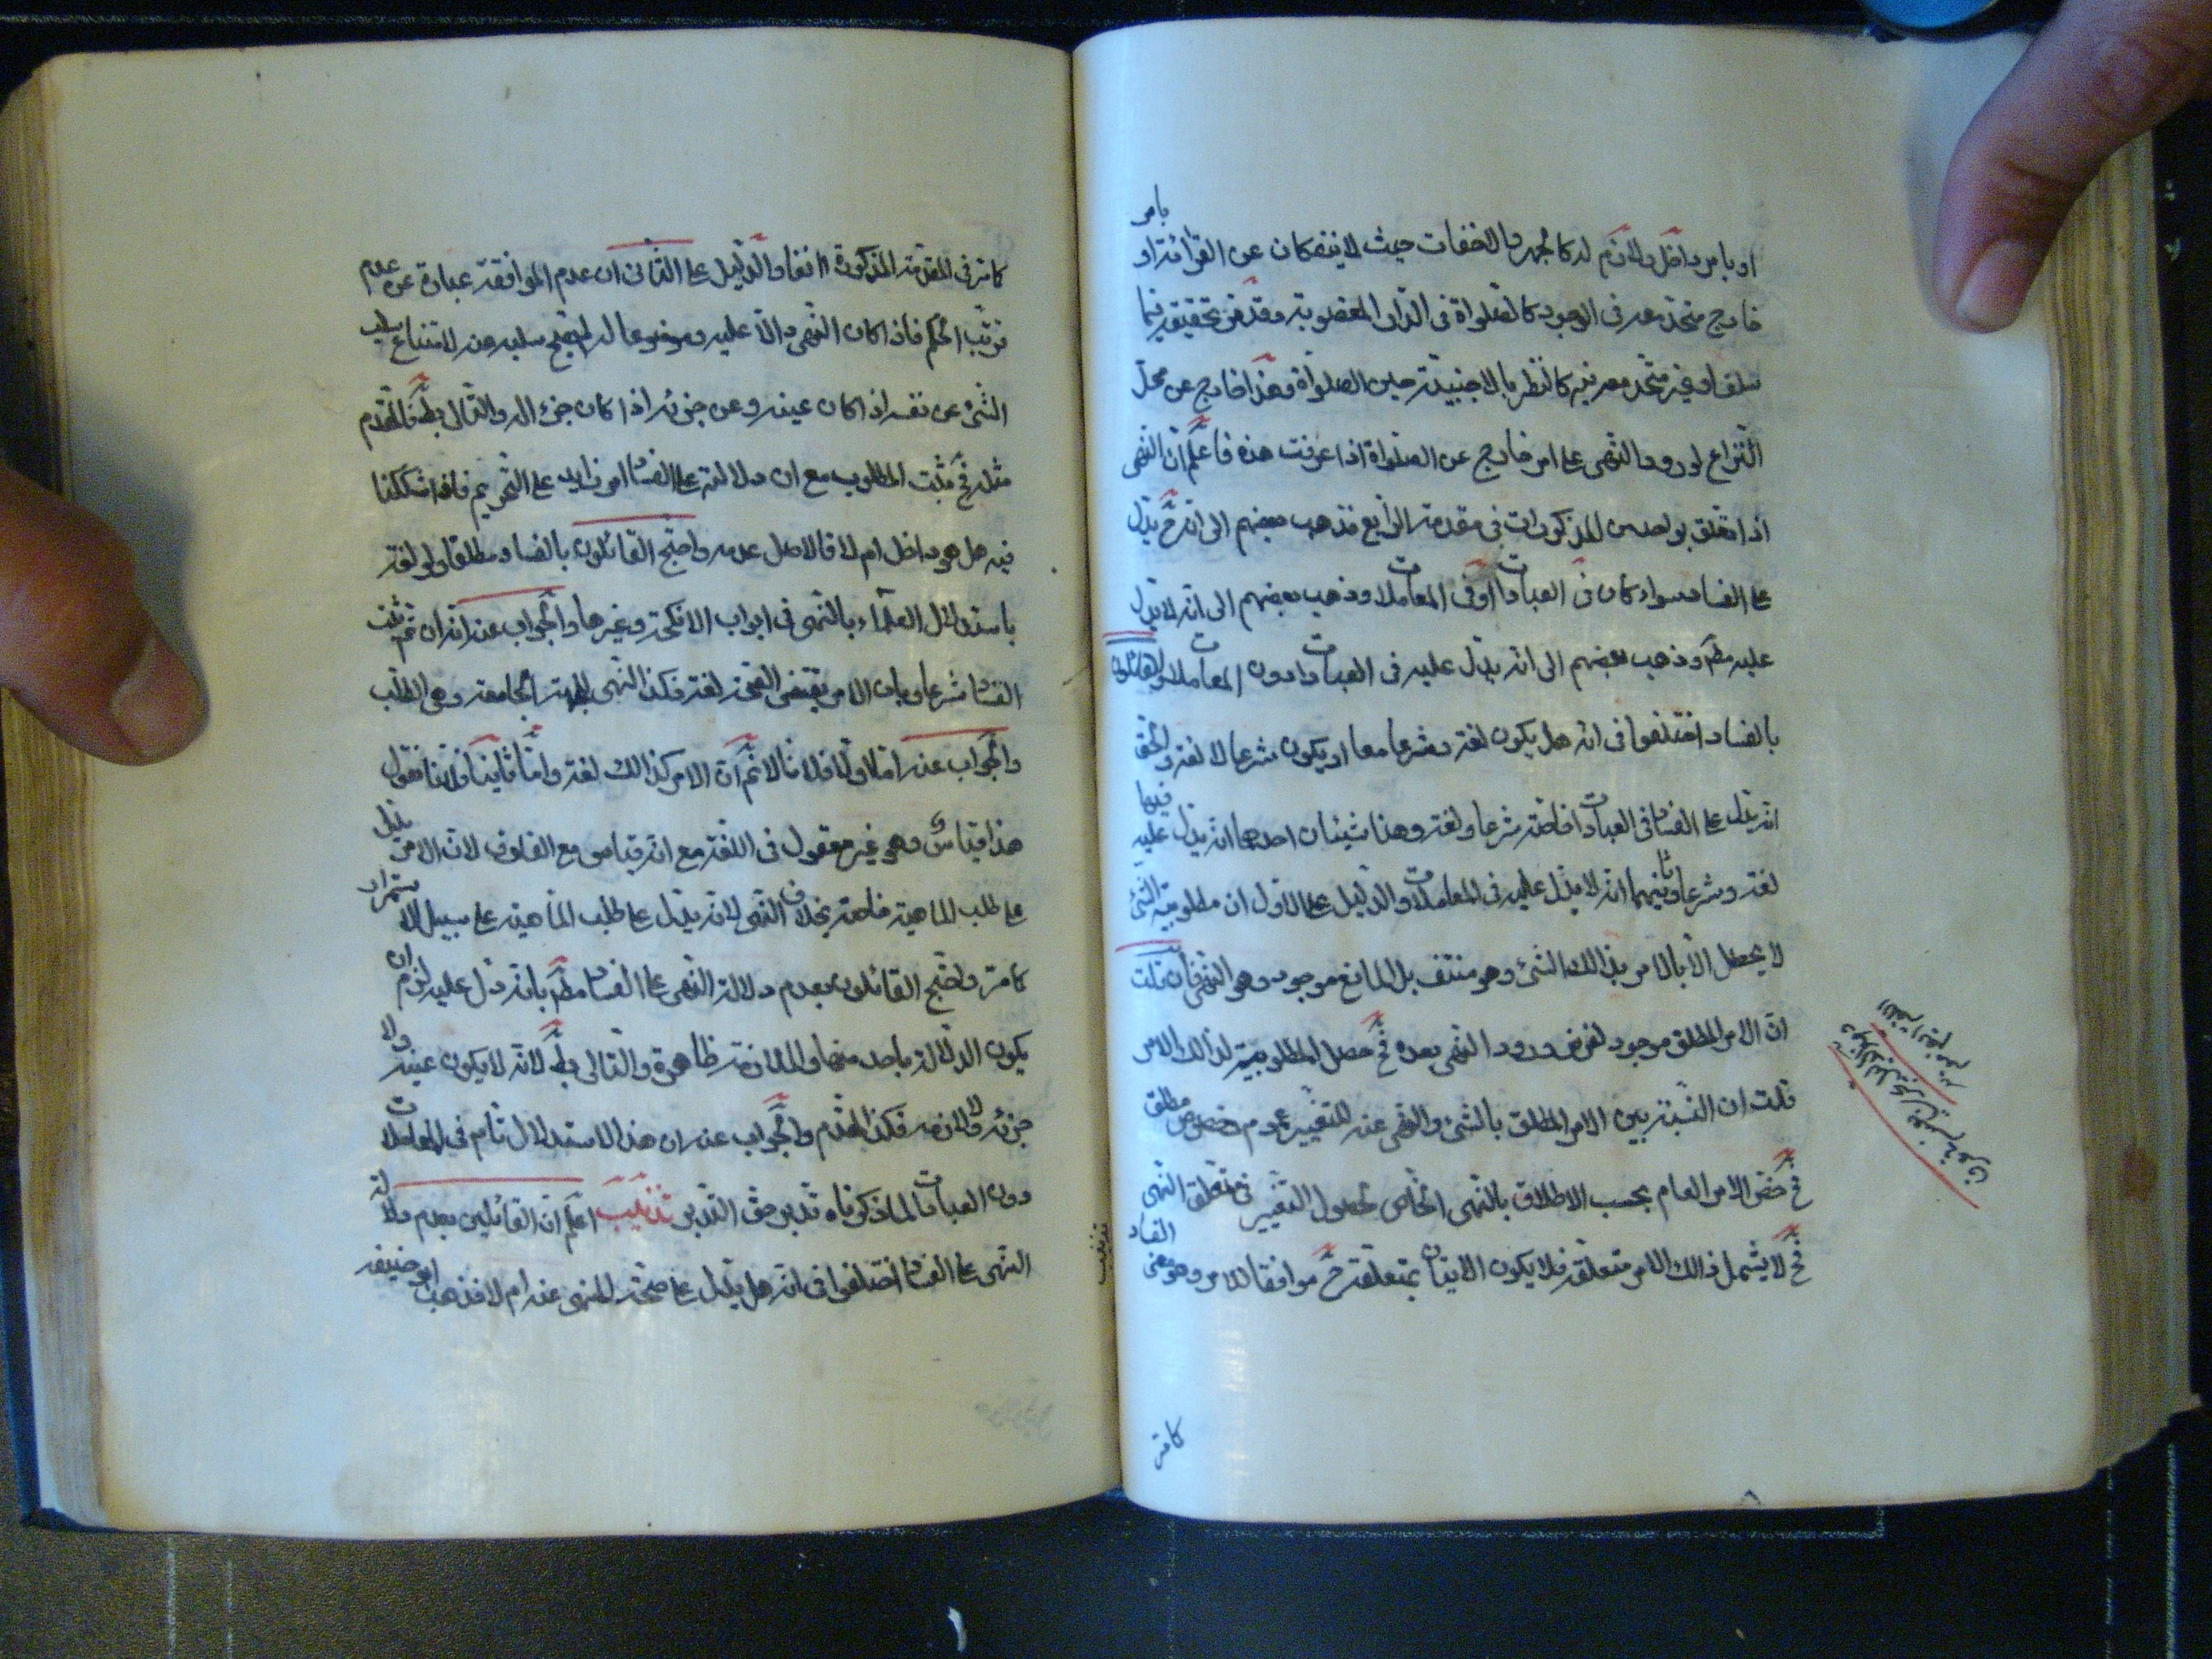 او بامر داخل ولازم له كالجهر والاخفات حيث لا ينفكان عن القرائة او بامر
خارج متحد معه في الوجود كالصلواة في الدار المغصوبة وقد مر تحقيقه فيما
سلف او غير متحد معه فيه كالنظر بالاجنبية حين الصلواة وهذا خارج عن محل
النزاع لورود النهى على امر خارج عن الصلواة اذا عرفت هذه فاعلم ان النهى
اذا تعلق بواحد من المذكورات في مقدمة الرابع فذهب بعضهم الى انه ح يدل
على الفساد سواء كان في العبادات او في المعاملات وذهب بعضهم الى انه لا يدل
عليه مط وذهب بعضهم الى انه يدل عليه في العبادات دون المعاملات والقائلون
بالفساد اختلفوا في انه هل يكون لغة وشرعا معا او يكون شرعا لا لغة والحق
انه يدل على الفساد في العبادات خاصة شرعا ولغة وهنا شيئان احدهما انه يدل عليه فيها
لغة وشرعا وثانيهما انه لا يدل عليه في المعاملات والدليل على الاول ان مطلوبية الشئ
لا يحصل الا بالامر بذالك الشئ وهو منتف بل المانع موجود وهو النهى فان قلت
ان الامر المطلق موجود لفرض ورود النهى بعده فح حصل المطلوبية لذالك الامر
قلت ان النسبة بين الامر المطلق بالشئ والنهى عنه للتغيير عموم وخصوص مطلق
فح خص الامر العام بحسب الاطلاق بالنهى الخاص لحصول التغيير في متعلق النهى
فح لا يشمل ذالك الامر متعلقه فلا يكون الاتيان بمتعلقه ح موافقا للامر وهو معنى الفساد
كما مر
كما مر في المقدمة المذكورة انفا والدليل على الثاني ان عدم الموافقة عبارة عن عدم
ترتب الحكم فاذا كان النهى دالا عليه وموضوعا له لم يصح سلبه عنه لامتناع سلب
الشئ عن نفسه اذا كان عينه وعن جزئه اذا كان جزء اله والتالى بط فالمقدم
مثله فح ثبت المطلوب مع ان دلالته على الفساد امر زايد على التحريم فاذا شككنا
فيه هل هو داخل ام لا فالاصل عدمه واحتج القائلون بالفساد مطلقا ولو لغة
باستدلال العلماء بالنهى في ابواب الانكحة وغيرها والجواب عنه انه ان تم ثبت
الفساد شرعا وبان الامر يقتضى الصحة لغة فكذا النهى لجهة الجامعة وهى الطلب
والجواب عنه اما اولا فلانا لا نم ان الامر كذالك لغة واما ثانيا فلاننا نقول
هذا قياس وهو غير معقول في اللغة مع انه قياس مع الفارق لان الامر يدل
على طلب الماهية خاصة بخلاف النهى لانه يدل على طلب الماهية على سبيل الاستمرار
كما مر واحتج القائلون بعدم دلالة النهى على الفساد مط بانه لو دل عليه لزم ان
يكون الدلالة باحد منها والملازمة ظاهرة والتالى بط لانه لا يكون عينه ولا
جزئه ولا لازمه فكذا المقدم والجواب عنه ان هذا الاستدلال تام في المعاملات
دون العبادات لما ذكرناه تدبر حق التدبر تذنيب اعلم ان القائلين بعدم دلالة
النهى على الفساد اختلفوا في انه هل يدل على صحة المنهى عنه ام لا فذهب ابو حنيفه
تذنيب